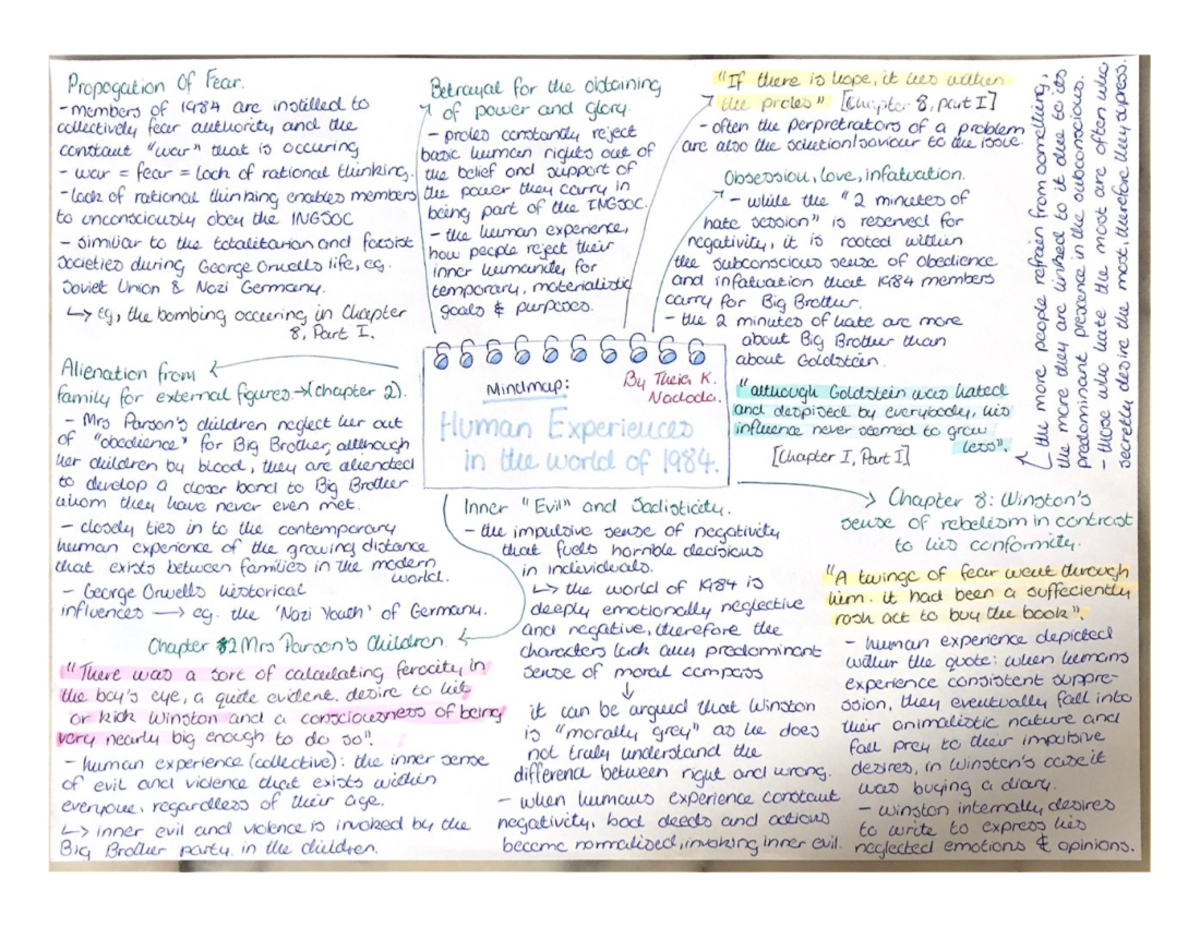 Propogation Of Fear.
- members of 1984 are instilled to
collectively fear authority and the
constant "war" that is occuring
- war = fear = lack of rational thinking.
- lack of rational thinking enables members
to unconsciously obey the INGSOC
- similiar to the totalitarian and facsist
societies during George Orwells life, eg.
Soviet Union & Nazi Germany.
↳ Eg, the bombing occuring in Chapter
8, Part I.
Betrayal for the obtaining
of power and glory.
- proles constantly reject
basic human rights out of
the belief and support of
the power they carry in
being part of the INGSOC.
- the human experience,
how people reject their
inner humanity for
temporary, materialistic
goals & purposes.
"If there is hope, it lies within
the proles" [Chapter 8, part I]
- often the perpretrators of a problem
are also the solution/saviour to the issue.
Obsession, love, infatuation.
- while the "2 minutes of
hate session" is reserved for
negativity, it is rooted within
the subconscious sense of obedience
and infatuation that 1984 members
carry for Big Brother.
- the 2 minutes of hate are more
about Big Brother than
about Goldstein.
"although Goldstein was hated
and despised by everybody, his
influence never seemed to grow
less".
[Chapter I, Part I]
the more people refrain from something,
the more they are linked to it due to its
predominant presence in the subconscious.
- those who hate the most are often who
secretly desire the most, therefore they supress.
Mindmap:
By Theia K.
Nadoda.
Human Experiences
in the world of 1984.
Alienation from
family for external figures → (chapter 2).
- Mrs Parson's children neglect her out
of "obedience" for Big Brother, although
her children by blood, they are alienated
to develop a closer bond to Big Brother
whom they have never even met.
- closely ties in to the contemporary
human experience of the growing distance
that exists between families in the modern
world.
- George Orwells historical
influences → eg. the 'Nazi Youth' of Germany.
Chapter 2 Mrs Parson's Children.
"There was a sort of calculating ferocity in
the boy's eye, a quite evident desire to hit
or kick Winston and a consciousness of being
very nearly big enough to do so".
- human experience (collective): the inner sense
of evil and violence that exists within
everyone, regardless of their age.
↳ inner evil and violence is invoked by the
Big Brother party in the children.
Inner "Evil" and Sadisticity.
- the impulsive sense of negativity
that fuels horrible decisions
in individuals.
↳ the world of 1984 is
deeply emotionally neglective
and negative, therefore the
characters lack any predominant
sense of moral compass
↓
it can be argued that Winston
is "morally grey" as he does
not truly understand the
difference between right and wrong.
- when humans experience constant
negativity, bad deeds and actions
become normalised, invoking inner evil.
Chapter 8: Winston's
sense of rebelism in contrast
to his conformity.
"A twinge of fear went through
him. it had been a suffeciently
rash act to buy the book".
- human experience depicted
within the quote: when humans
experience consistent suppre-
ssion, they eventually fall into
their animalistic nature and
fall prey to their impulsive
desires, in Winston's case it
was buying a diary.
- Winston internally desires
to write to express his
neglected emotions & opinions.